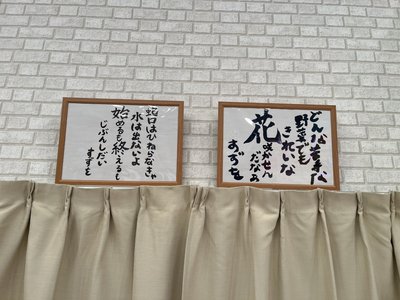 蛇口はひねらなきゃ
水は出ないよ
始めるも終えるも
じぶんしだい
すずを
どんな苦手な
野菜でも
きれいな
花
さかせん
だなぁ
すずを